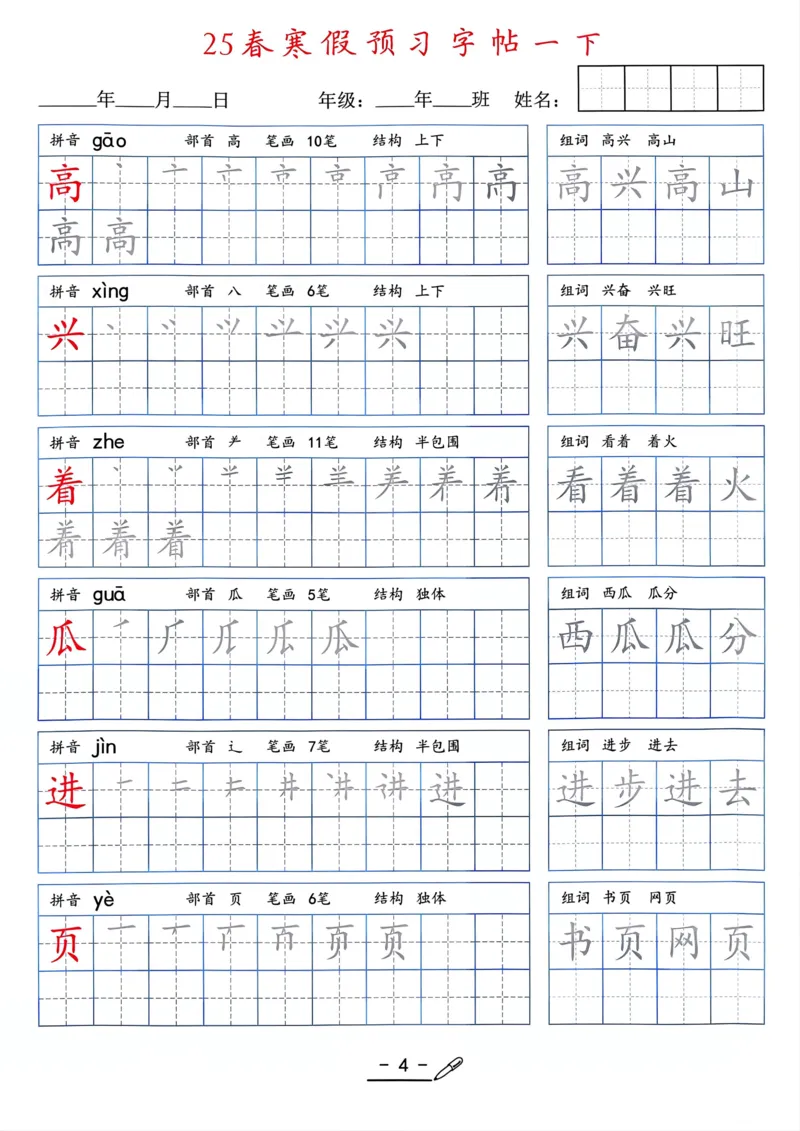 25春寒假预习字帖一下
____年____月____日 年级：____年____班 姓名：
拼音 gāo 部首 高 笔画 10笔 结构 上下
组词 高兴 高山
高 高 高兴高山
高 高
拼音 xìng 部首 八 笔画 6笔 结构 上下
组词 兴奋 兴旺
兴 兴 兴奋兴旺
拼音 zhe 部首 羊 笔画 11笔 结构 半包围
组词 看着 着火
着 看着着火
着
拼音 guā 部首 瓜 笔画 5笔 结构 独体
组词 西瓜 瓜分
瓜 瓜 西瓜瓜分
拼音 jìn 部首 辶 笔画 7笔 结构 半包围
组词 进步 进去
进 进 进步进去
拼音 yè 部首 页 笔画 6笔 结构 独体
组词 书页 网页
页 页 书页网页
- 4 -